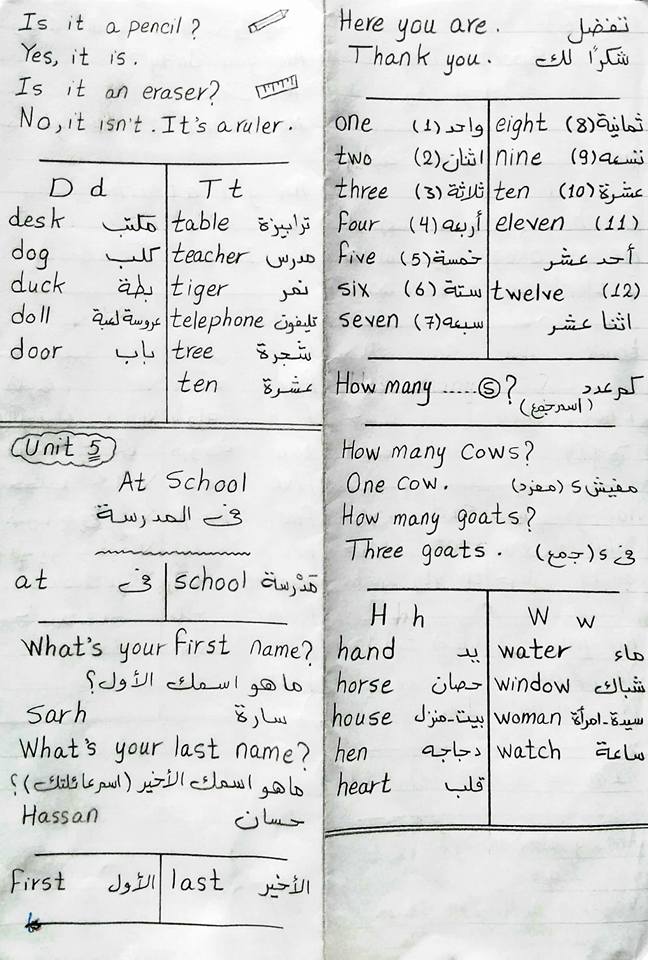 Is it a pencil?
Yes, it is.
Is it an eraser?
No, it isn't. It's a ruler.
D d
desk مكتب
dog كلب
duck بطة
doll عروسة لعبة
door باب
T t
table ترابيزة
teacher مدرس
tiger نمر
telephone تليفون
tree شجرة
ten عشرة
Unit 5
At School
فى المدرسة
at فى
school مَدْرسة
What's your first name?
ما هو اسمك الأول؟
Sarh سارة
What's your last name?
ماهو اسمك الأخير (اسم عائلتك)؟
Hassan حسان
first الأول
last الأخير
Here you are. تفضل
Thank you. شكرًا لك
one واحد (1)
two اثنان (2)
three ثلاثة (3)
four أربعه (4)
five خمسة (5)
six ستة (6)
seven سبعه (7)
eight ثمانية (8)
nine تسعه (9)
ten عشرة (10)
eleven (11)
أحد عشر
twelve (12)
اثنا عشر
How many ...... s? كم عدد
(اسم جمع)
How many cows?
One cow. مفيش s (مفرد)
How many goats?
Three goats. فى s (جمع)
H h
hand يد
horse حصان
house بيت-منزل
hen دجاجه
heart قلب
W w
water ماء
window شباك
woman سيدة-امرأة
watch ساعة